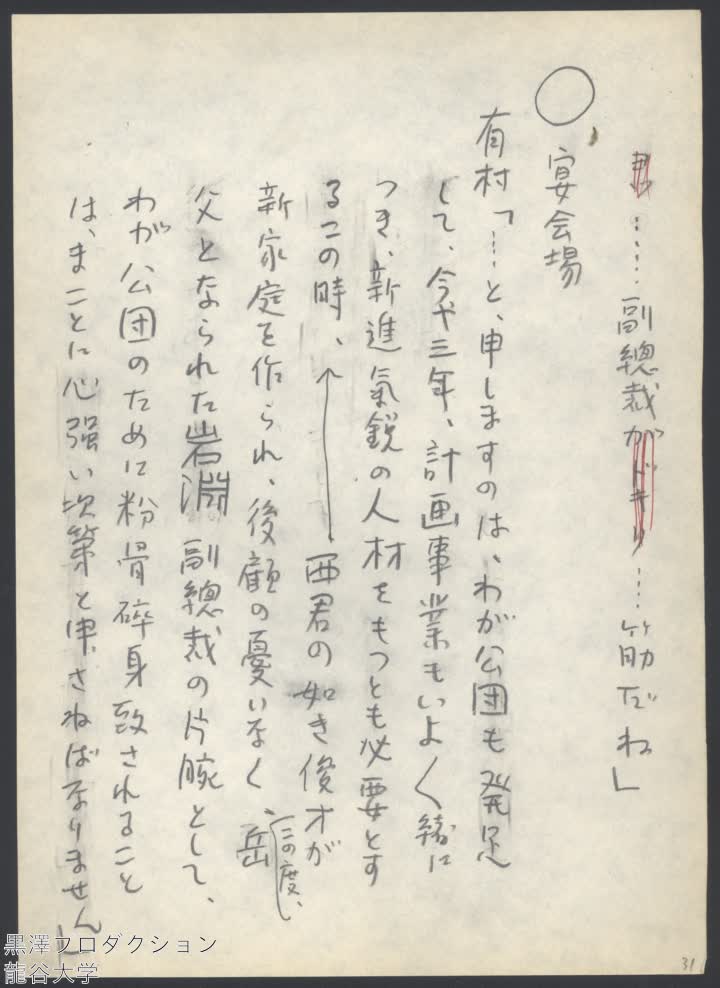 ……副總裁が……筋だね」
◯
宴会場
有村「…と、申しますのは、わが公団も発足
して、今や三年、計画事業もいよ〱緒に
つき、新進氣鋭の人材をもつとも必要とす
る二の時、
西君の如き俊才が
この度、
新家庭を作られ、後顧の憂いなく、岳
父となられた岩淵副總裁の片腕として、
わが公団のために粉骨碎身致されること
は、まことに心强い次第と申さねばなりません」
31
黒澤プロダクション
龍谷大学